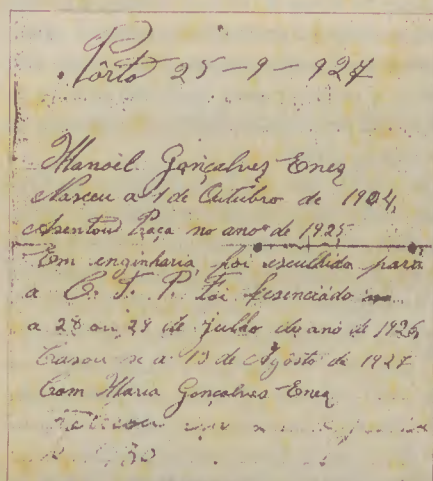 Pôrto 25-9-927
Manoel Gonçalves Enes
Nasceu a 1 de Outubro de 1904,
Asentou Praça no ano de 1925
Em enginharia, foi esculhido para
a C. T. P. Foi lesenciado
a 28 ou 29 de julho do ano de 1926,
Casou se a 13 de Agôsto de 1927
Com Maria Gonçalves Enes